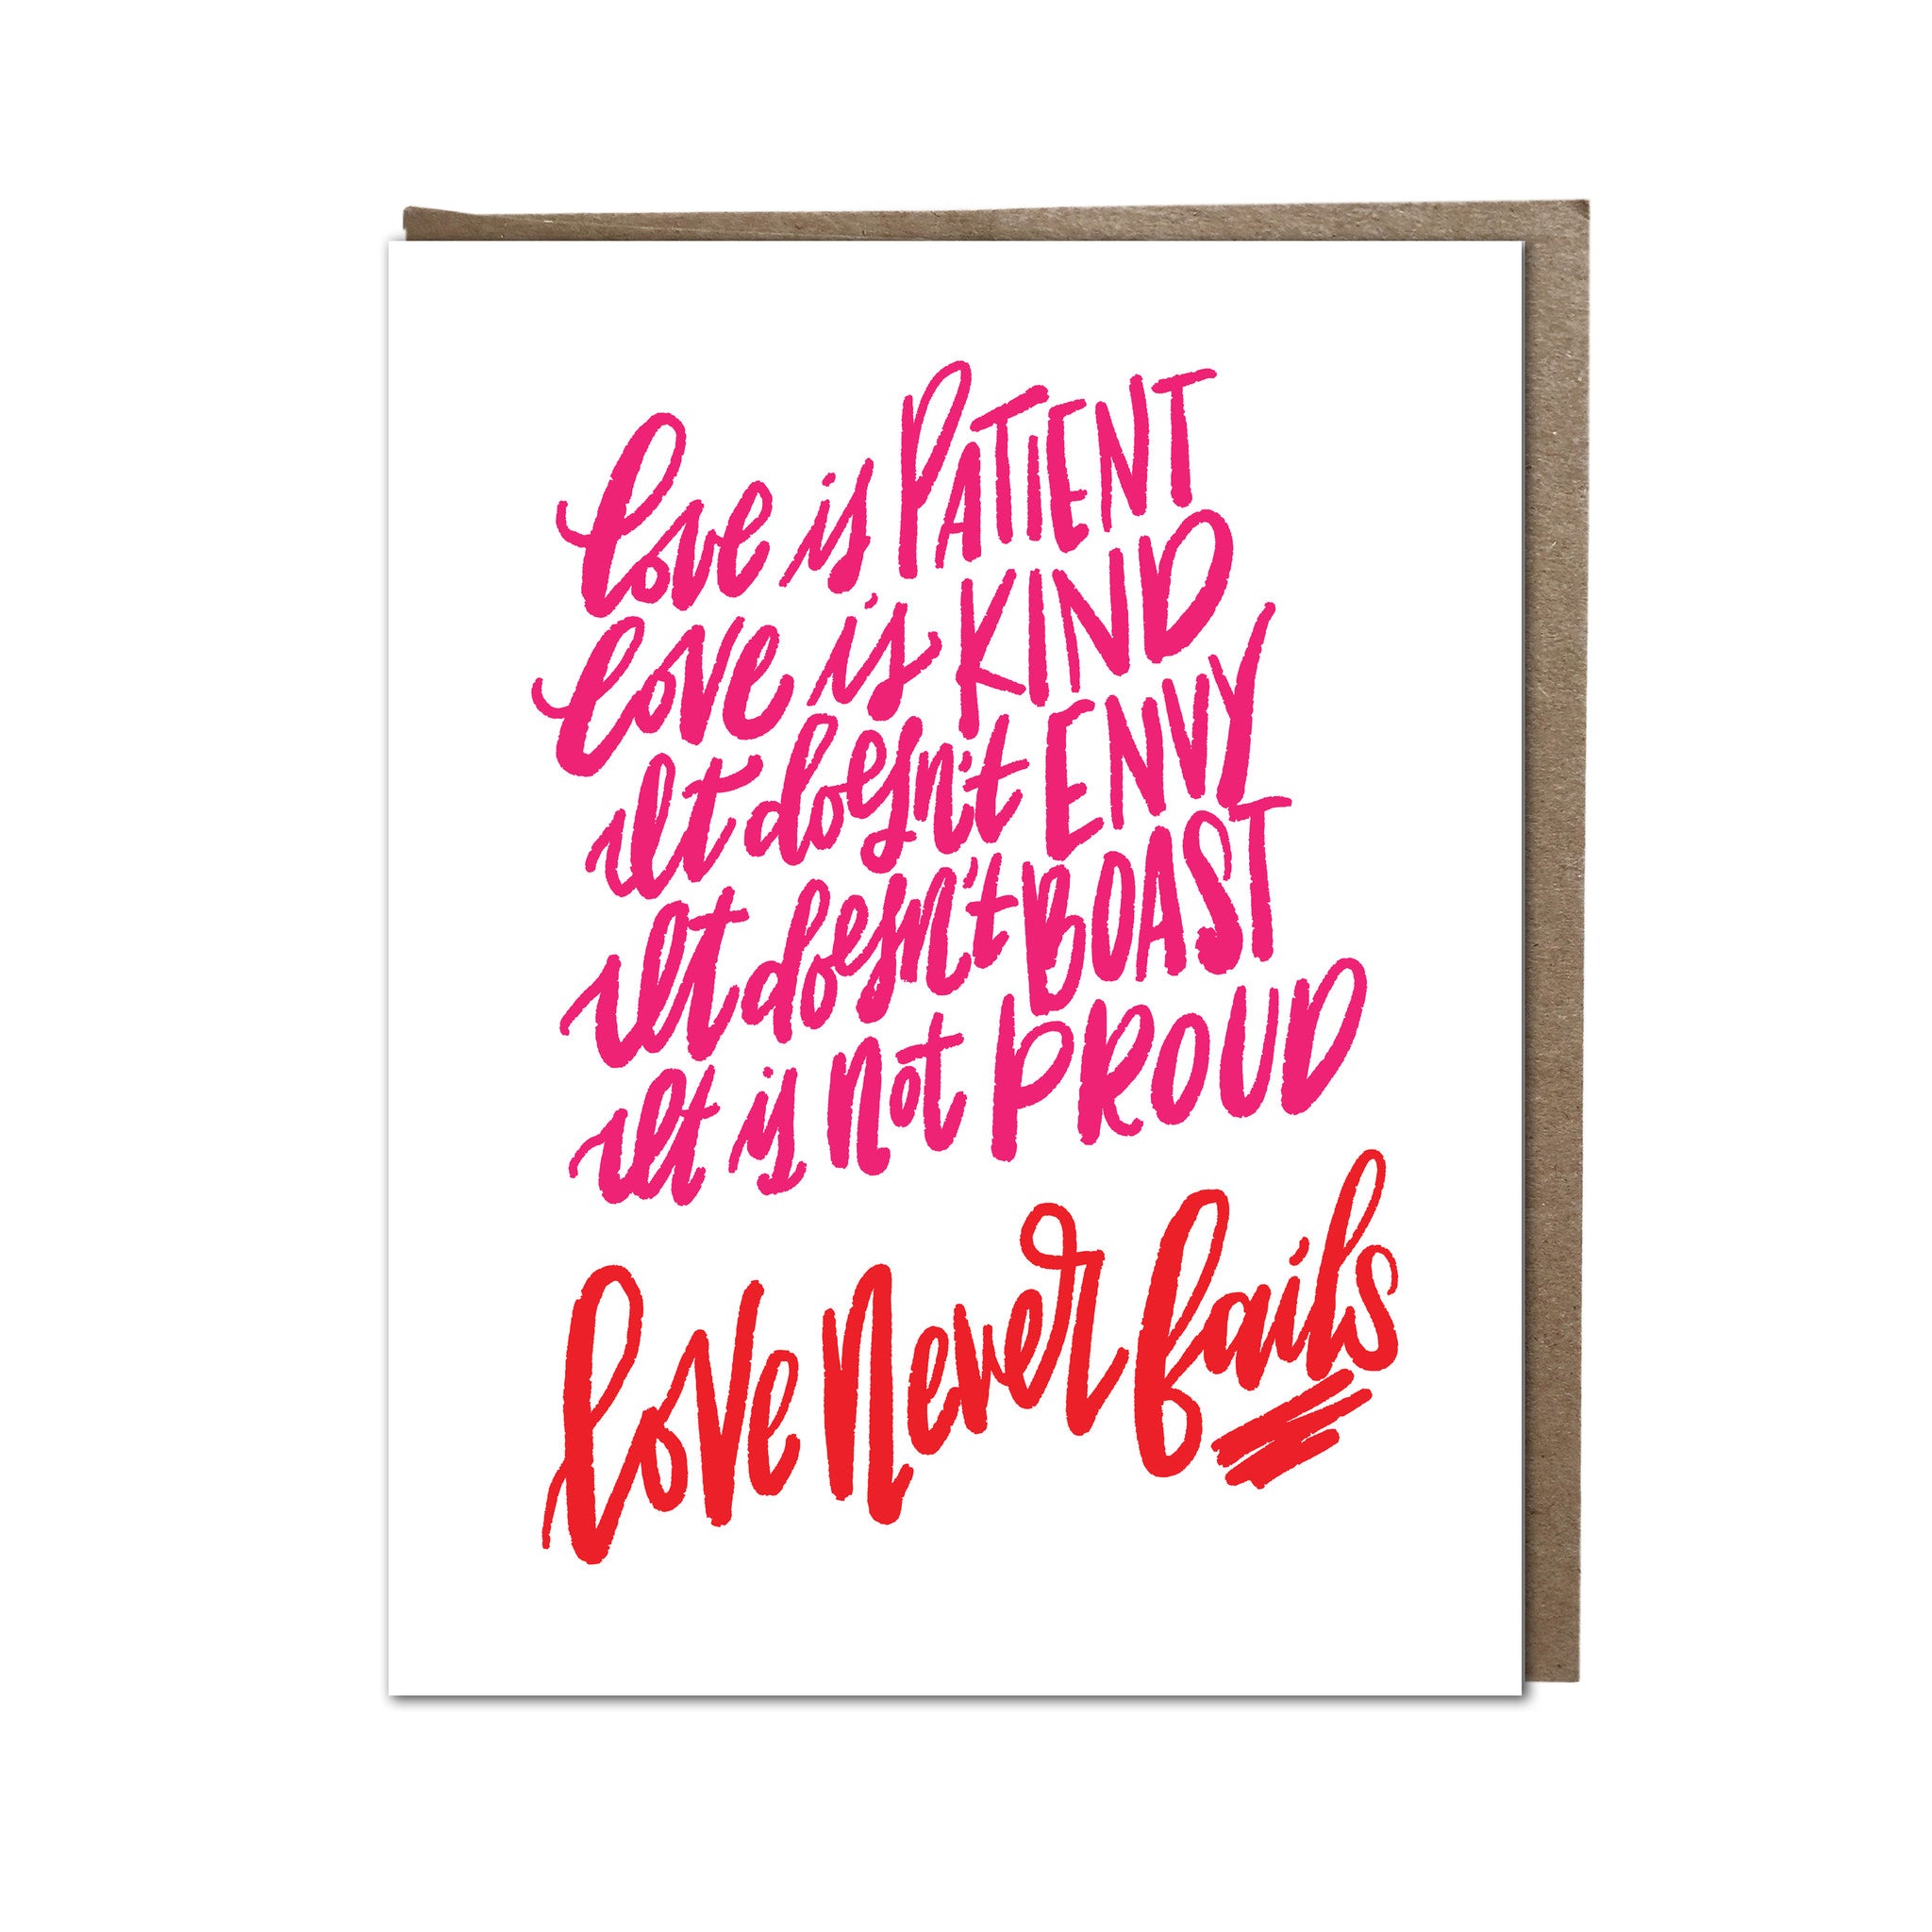 love is PATIENT
love is KIND
It doesn't ENVY
It doesn't BOAST
It is not PROUD
love never fails